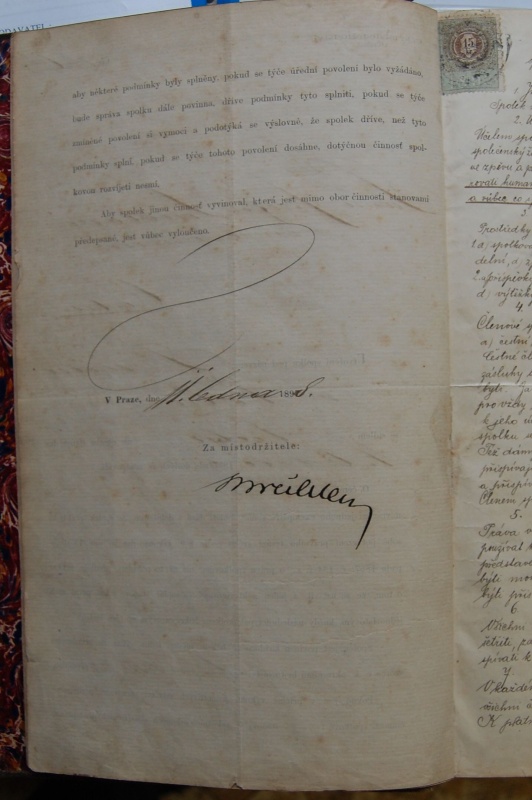 aby některé podmínky byly splněny, pokud se týče úřední povolení bylo vyžádáno,
bude správa spolku dále povinna, dříve podmínky tyto splniti, pokud se týče
zmíněné povolení si vymoci a podotýká se výslovně, že spolek dříve, než tyto
podmínky splní, pokud se týče tohoto povolení dosáhne, dotyčnou činnost spol-
kovou rozvíjeti nesmí.
Aby spolek jinou činnost vyvinoval, která jest mimo obor činnosti stanovami
předepsané, jest vůbec vyloučeno.
V Praze, dne 11. ledna 1898.
Za místodržitele:
15
Spolek
2. Ú
Účelem spo
společenský
ue zprávu a p
sovati human
a vůbec co s
3
Prostředky
1 a) spolkov
delní, d) z
2 a) příspěvk
d) výtěžk
4.
Členové s
a) čestní,
Čestné čl
zásluhy s
býti. Ja
pro vždy
k jeho ú
spolku a
Též dám
přispívaj
a přispív
Členem sp
5.
Práva v
používat k
představe
býti mo
býti přís
6.
Všichni
šetřiti, za
spívati k
7.
V každém
všichni č
K platn